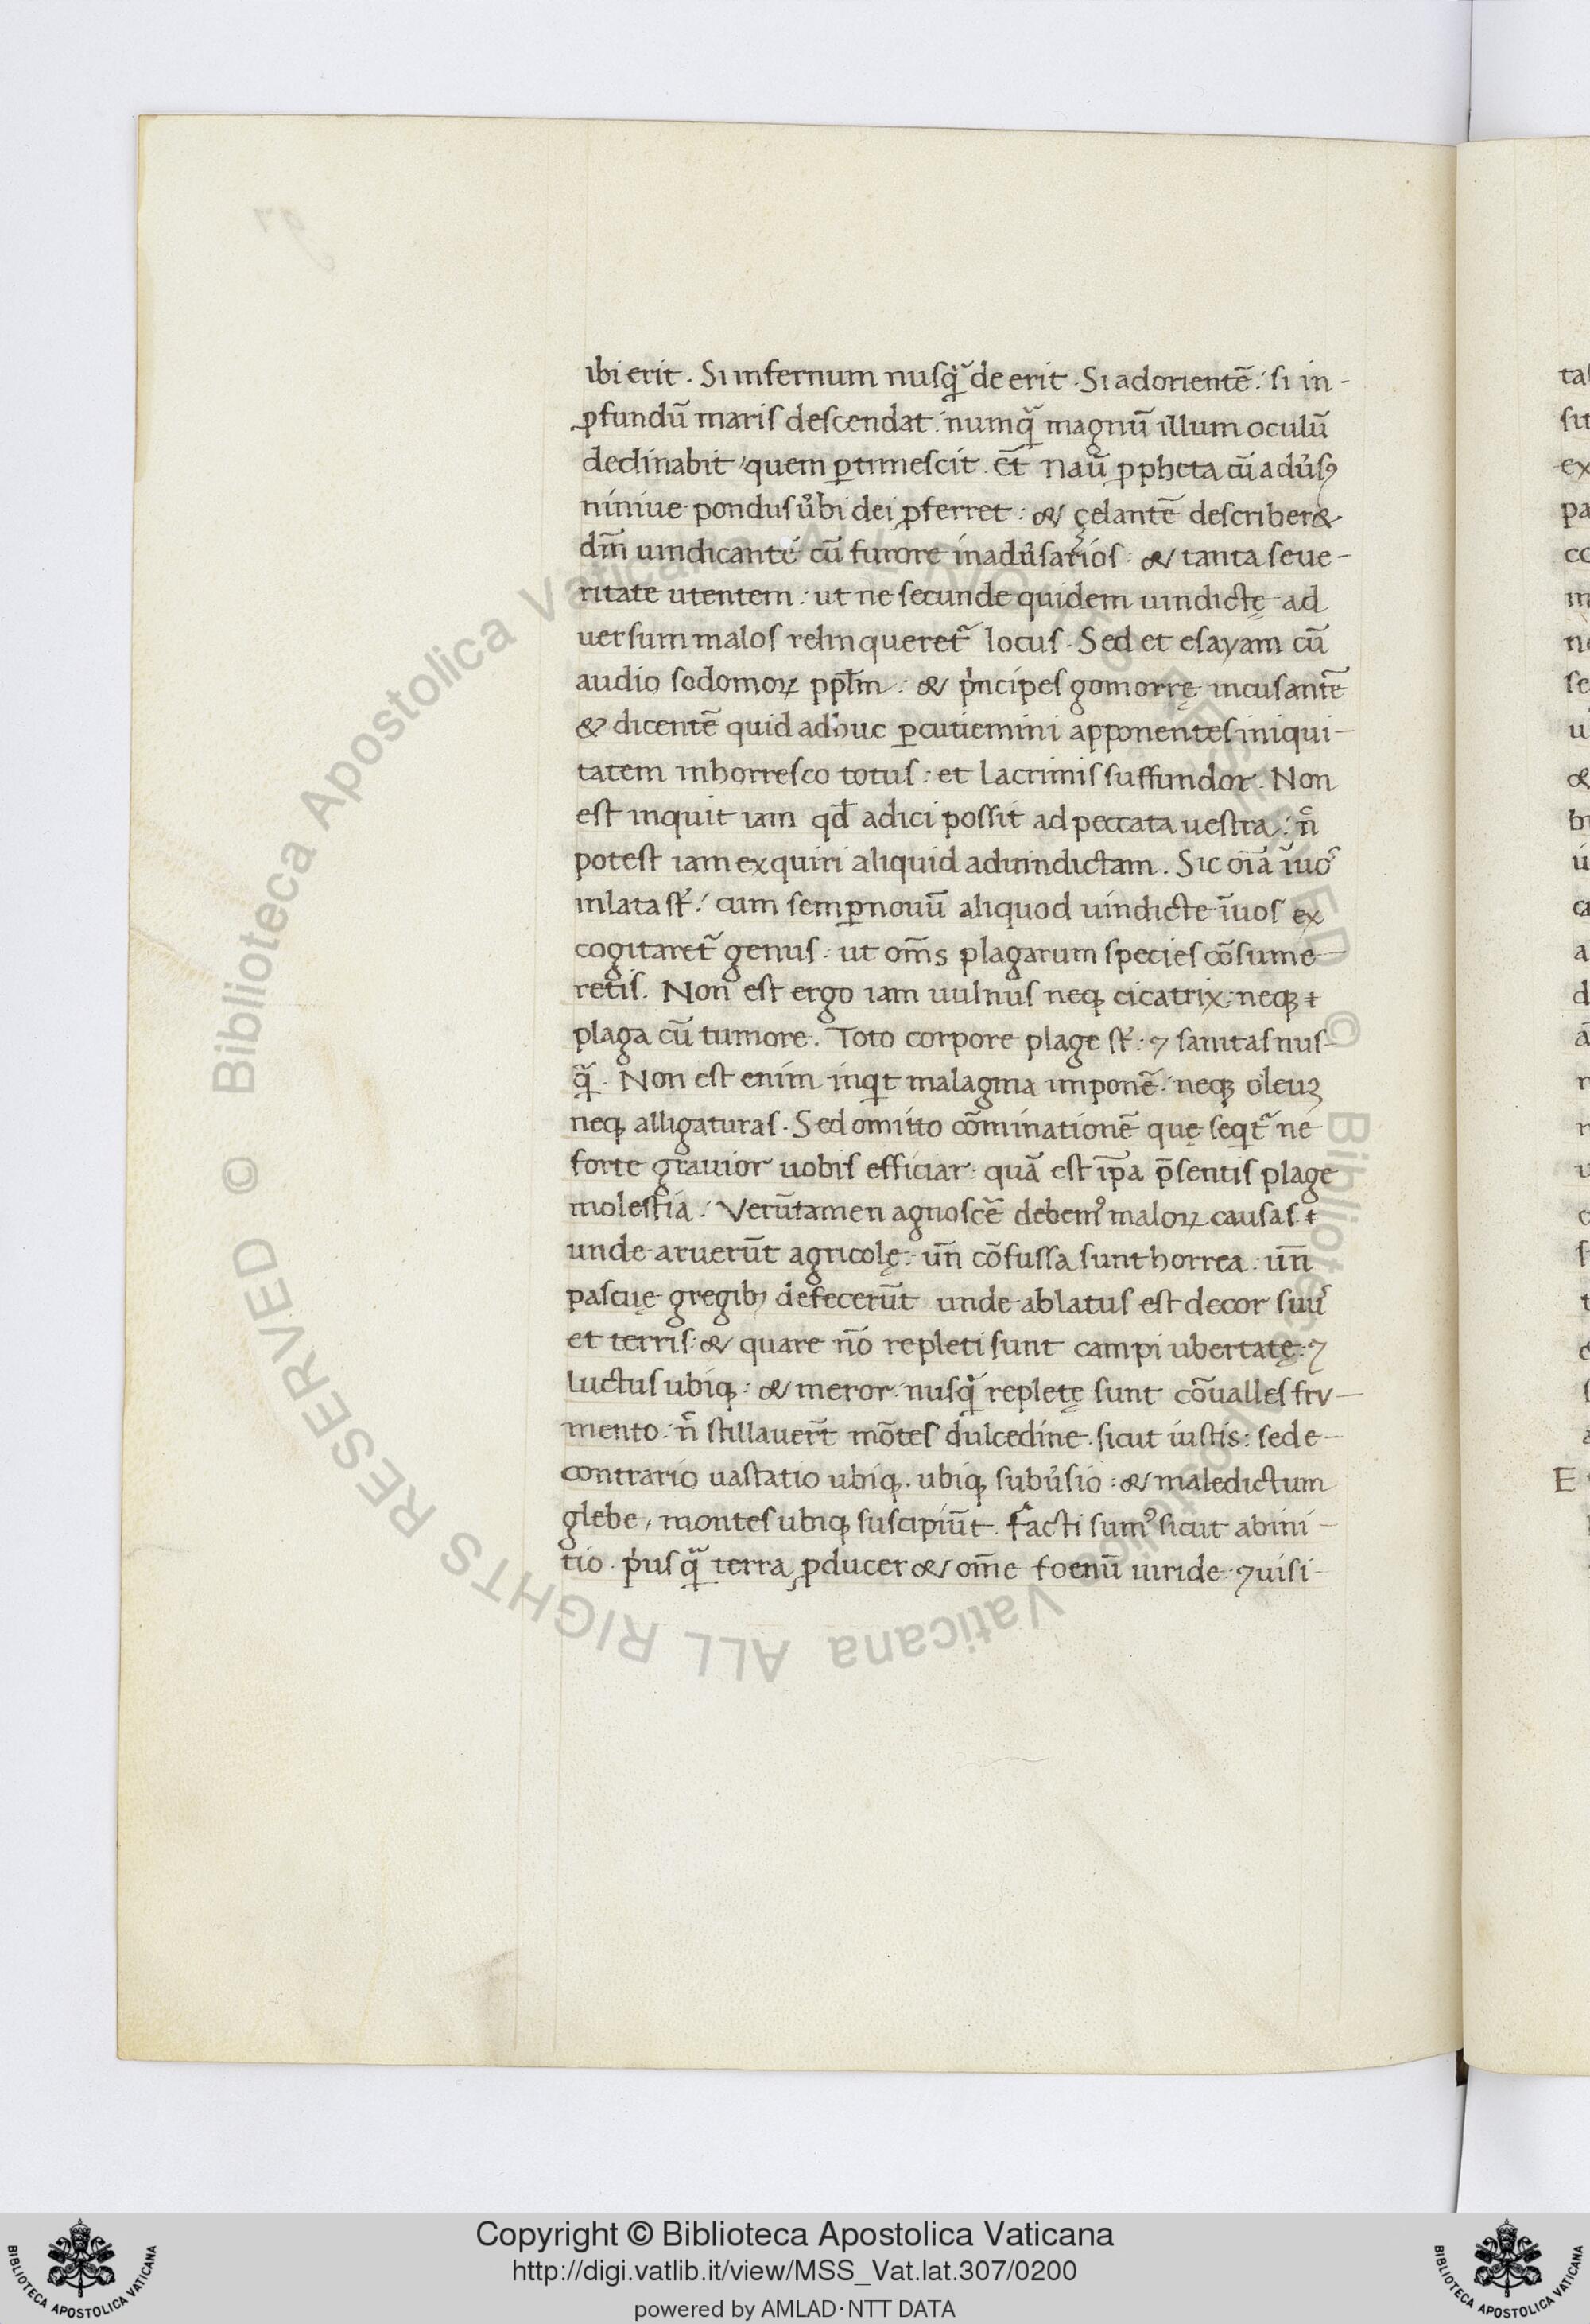 ibi erit. Si infernum nusq̃ de erit. Si ad orientẽ: si in-
ꝓfundũ maris descendat: numq̃ magnũ illum oculũ
declinabit, quem ꝑtimescit. et̃ Naũ ꝓpheta cũ adůsꝰ
niniue pondus ůbi dei ꝓferret: & çelantẽ describer&
dm̃ uindicantẽ cũ furore in adůsarios: & tanta seue-
ritate utentem: ut ne secunde quidem uindictę ad
uersum malos relinqueret̃ locus. Sed et esayam cũ
audio sodomoꝝ ppl̃m: & pͥncipes gomorrę incusantẽ
& dicentẽ quid adhuc ꝑcutiemini apponentes iniqui-
tatem inhorresco totus: et lacrimis suffundor. Non
est inquit iam qđ adici possit ad peccata uestra: n̊
potest iam exquiri aliquid ad uindictam. Sic oĩa ĩuoˢ
inlata st̃: cum semꝑ nouũ aliquod uindicte ĩuos ex
cogitaret̃ genus: ut om̃s plagarum species cõsume-
retis. Non est ergo iam uulnus neqꝫ cicatrix: neqꝫ
plaga cũ tumore. Toto corpore plage st̃: ⁊ sanitas nus-
q̃. Non est enim inqͥt malagma imponẽ: neqꝫ oleuꝫ
neqꝫ alligaturas. Sed omitto cõminationẽ quę seqͥt̃ ne
forte grauior uobis efficiar: quã est ip̃a p̃sentis plage
molestia: Verũtamen agnoscẽ debemꝰ maloꝝ causas
unde aruerũt agricolę: uñ cõfussa sunt horrea: uñ
pascuę gregibꝫ defecerũt unde ablatus est decor suuˢ
et terris: & quare nõ repleti sunt campi ubertatę: ⁊
Luctus ubiqꝫ: & meror: nusq̃ repletę sunt cõualles fru-
mento: n̊ stillauer̃t mõtes dulcedine. sicut iustis: sed e-
contrario uastatio ubiqꝫ. ubiqꝫ subůsio: & maledictum
glebe, montes ubiqꝫ suscipiũt. Facti sumꝰ sicut ab ini-
tio. pͥus q̃ terra ꝓducer& om̃e foenũ uiride: ⁊ uisi-
Copyright © Biblioteca Apostolica Vaticana
http://digi.vatlib.it/view/MSS_Vat.lat.307/0200
powered by AMLAD·NTT DATA